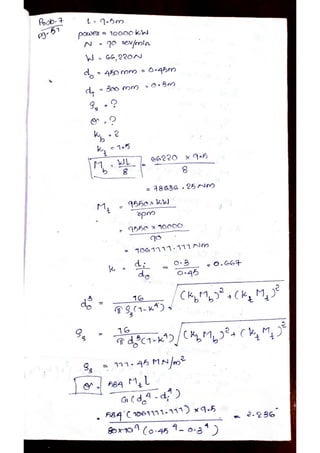 Prob-7
pg-51
l = 9.5m
power = 10000 kW
N = 90 rev/min
W = 66,220N
do = 450mm = 0.45m
di = 300 mm = 0.3m
ςs = ?
θ = ?
kb = 2
kt = 1.5
Mb = Wl/8 = 66220 x 9.5/8
= 78636.25 Nm
Mt = 9550 x kW/rpm
= 9550 x 10000/90
= 1061111.111 Nm
k = di/do = 0.3/0.45 = 0.667
do³ = 16/π ςs(1-k⁴) √(kb Mb)² + (kt Mt)²
ςs = 16/π do³(1-k⁴) √(kb Mb)² + (kt Mt)²
ςs = 111.45 MN/m²
θ = 584 Mt l/G(do⁴ - di⁴)
= 584 (1061111.111) x 9.5/80x10⁹ (0.45⁴ - 0.3⁴) = 2.236°